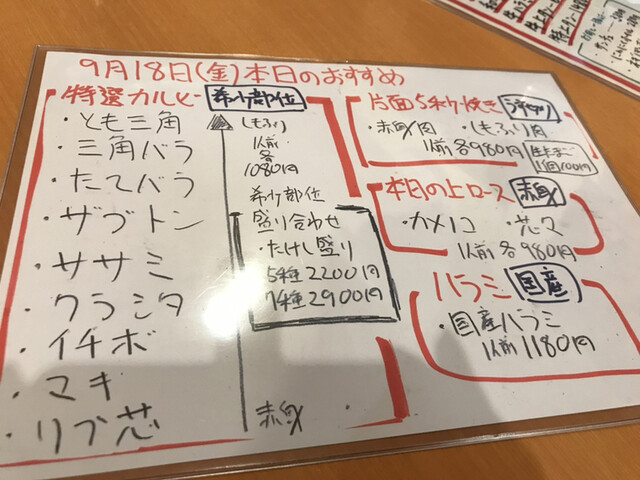 9月18日(金)本日のおすすめ
特選カルビー 希少部位
・とも三角
・三角バラ
・たてバラ
・ザブトン
・ササミ
・クラシタ
・イチボ
・マキ
・リブ芯
しもふり
1人前
各
1080円
希少部位
盛り合わせ
・たけし盛り
5種2200円
7種2900円
赤身
片面5秒焼き
・赤身肉 ・しもふり肉
1人前 各980円
生たまご
1個100円
本日の上ロース 赤身
・カメノコ ・芯々
1人前 各980円
ハラミ 国産
・国産ハラミ
1人前 1180円